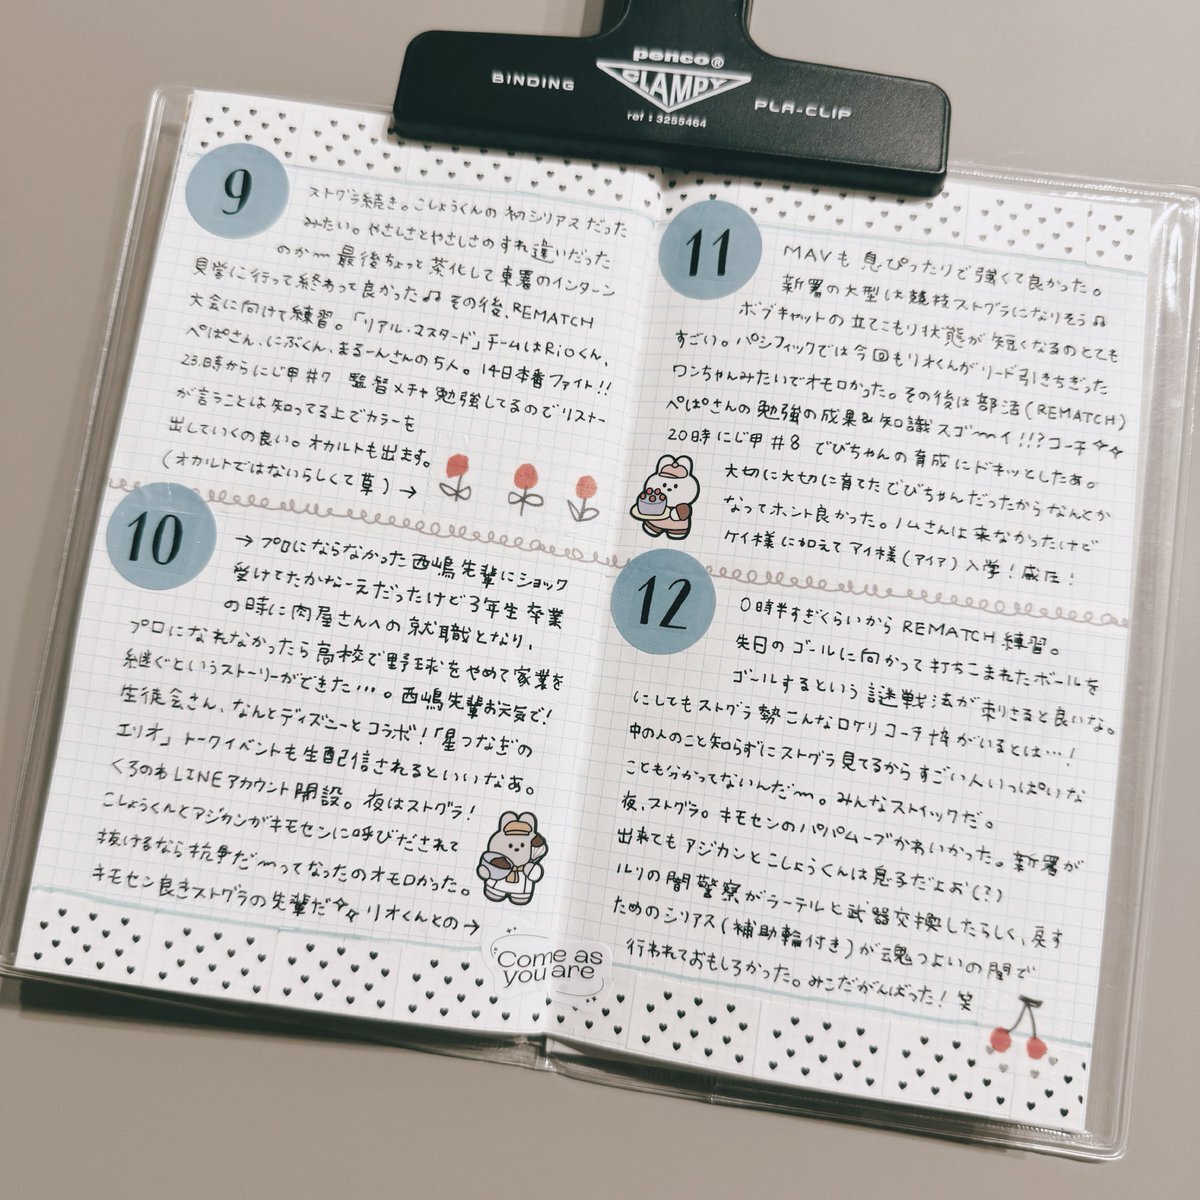 penco®
BINDING
CLAMPY
PLA-CLIP
ref : 3255464
9
ストグラ続き。こしょうくんの初シリアスだった
みたい。やさしさとやさしさのすれ違いだった
のか〜 最後ちょっと茶化して東署のインターン
見学に行って終わって良かった♫ その後、REMATCH
大会に向けて練習。「リアル・マスタード」チームはRioくん、
ぺぱさん、にぶくん、まるーんさんの5人。14日本番ファイト!!
23時からにじ甲#7 監督メチャ勉強してるのでリスナー
が言うことは知ってる上でカラーを
出していくの良い。オカルトも出ます。
(オカルトではないらしくて草)→
10
→プロにならなかった西嶋先輩にショック
受けてたかなーえだったけど3年生卒業
の時に肉屋さんへの就職となり、
プロになれなかったら高校で野球をやめて家業を
継ぐというストーリーができた…。西嶋先輩お元気で!
生徒会さん、なんとディズニーとコラボ!「星つなぎの
エリオ」トークイベントも生配信されるといいなあ。
くろのわLINEアカウント開設。夜はストグラ!
こしょうくんとアジカンがキモセンに呼びだされて
抜けるなら抗争だ〜ってなったのオモロかった。
キモセン良きストグラの先輩だ✧✧ リオくんとの→
Come as
you are
11
MAVも息ぴったりで強くて良かった。
新署の大型は競技ストグラになりそう♫
ボブキャットの立てこもり状態が短くなるのとても
すごい。パシフィックでは今回もリオくんがリード引きちぎった
ワンちゃんみたいでオモロかった。その後は部活(REMATCH)
ぺぱさんの勉強の成果&知識スゴ〜イ!!?コーチ✧✧
20時にじ甲#8 でびちゃんの育成にドキッとしたぁ。
大切に大切に育てたでびちゃんだったからなんとか
なってホント良かった。ノムさんは来なかったけど
ケイ様に加えてアイ様(アイア)入学!威圧!
12
0時半すぎくらいからREMATCH練習。
先日のゴールに向かって打ちこまれたボールを
ゴールするという謎戦法が刺さると良いな。
にしてもストグラ勢こんなロケリコーチ陣がいるとは…!
中の人のこと知らずにストグラ見てるからすごい人いっぱいな
ことも分かってないんだ〜。みんなストイックだ。
夜、ストグラ。キモセンのパパムーブかわいかった。新署が
出来てもアジカンとこしょうくんは息子だよお(?)
ルリの闇警察がラーテルと武器交換したらしく、戻す
ためのシリアス(補助輪付き)が魂つよいの間で
行われておもしろかった。みこだがんばった!笑